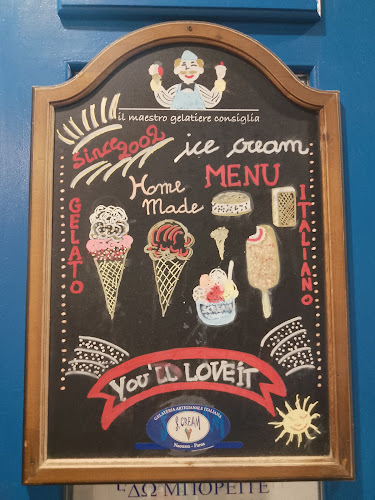 il maestro gelatiere consiglia
Since 2002
ice cream
MENU
Home
Made
GELATO
ITALIANO
YOU'LL LOVE IT
GELATERIA ARTIGIANALE ITALIANA
Naoussa - Paros
ΔΩ ΜΠΟΡΕΙΤΕ